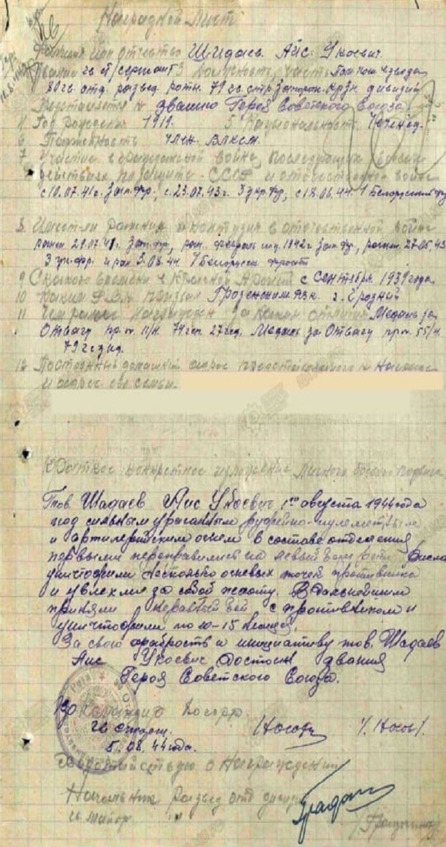 Наградной Лист
Фамилия Имя Отчество Шидаев Айс Укоевич
Звание гв ст/сержант 3 Должность, часть Пом. ком. взвода
80 гв. отд. развед. роты 79 гв. стр. запорож. крзн. дивизии
Представляется к званию Героя Советского Союза
4 Год рождения 1919. 5 Национальность Чечен
6 Партийность Член ВЛКСМ.
7 Участие в гражданской войне, последующих боевых
действиях по защите СССР и отечественной войне
с 10.07.41г. Зап. фр., с 23.07.43г. 3 укр. фр., с 18.06.44 1 Белорусский фр.
8 Имеет ли ранения и контузии в отечественной войне
ранен Зап. фр, ран. февраль м-ц 1942г. Зап. фр, ранен 27.05.43
3 укр. фр. и ран 3.08.44 1 Белорусск. фронт
9 С какого времени в Красной Армии с сентября 1939 года.
10 Каким РВК призван Грозненским РВК г. Грозный
11 Чем ранее награжден за какие отличия Медаль за
Отвагу пр. 27 гсд. Медаль за Отвагу при. 55/н
79 гсд.
12 Постоянный домашний адрес представляемого к Награде
и адрес его семьи.
Краткое конкретное изложение личного боевого подвига
Тов. Шадаев Аис Укоевич 1го августа 1944 года
под сильным ураганным ружейно-пулеметным
и артиллерийским огнем в составе отделения
первыми переправились на левый берег реки Висла
уничтожили несколько огневых точек противника
и увлекли за собой пехоту. В дальнейшем
приняли неравный бой с противником и
уничтожили по 10-15 немцев.
За свою храбрость и инициативу тов. Шадаев
Аис Укоевич достоин звания
Героя Советского Союза.
Командир
гв
5.08.44 года. /Носов/
Ходатайствую о Награждении
Начальник развед отд дивизии
гв. майор